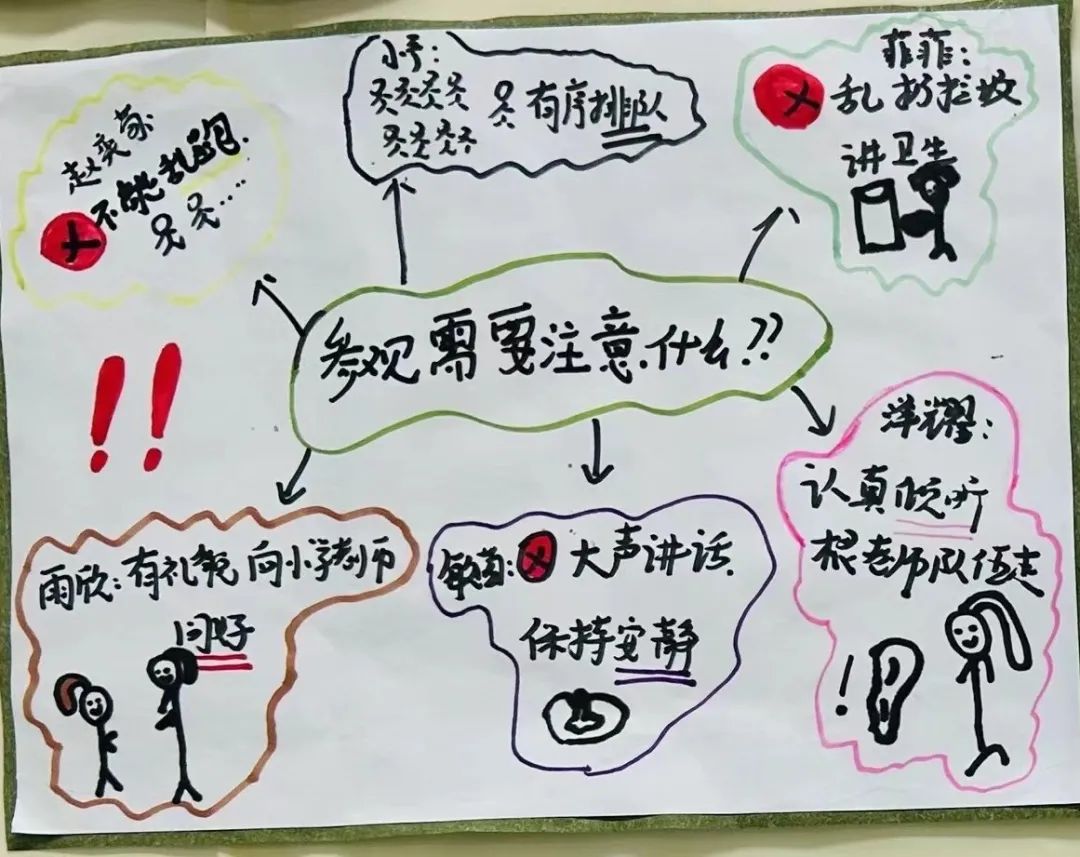 参观需要注意什么??
赵奕
不能乱跑.
小予:
有序排队
菲菲:
乱扔垃圾
讲卫生
雨欣:有礼貌 向小学老师
问好
大声讲话.
保持安静
洋
认真倾听
根老师队伍走